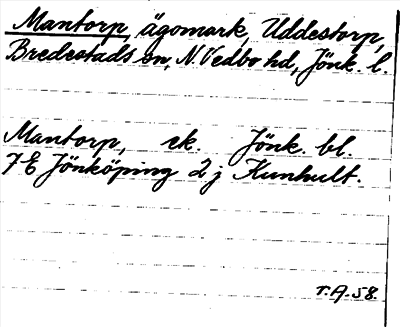 Mantorp, ägomark, Uddestorp,
Bredestads sn, N. Vedbo hd, Jönk. l.
Mantorp, ek. Jönk. bl.
7E Jönköping 2j Kunhult.
T.A.58.